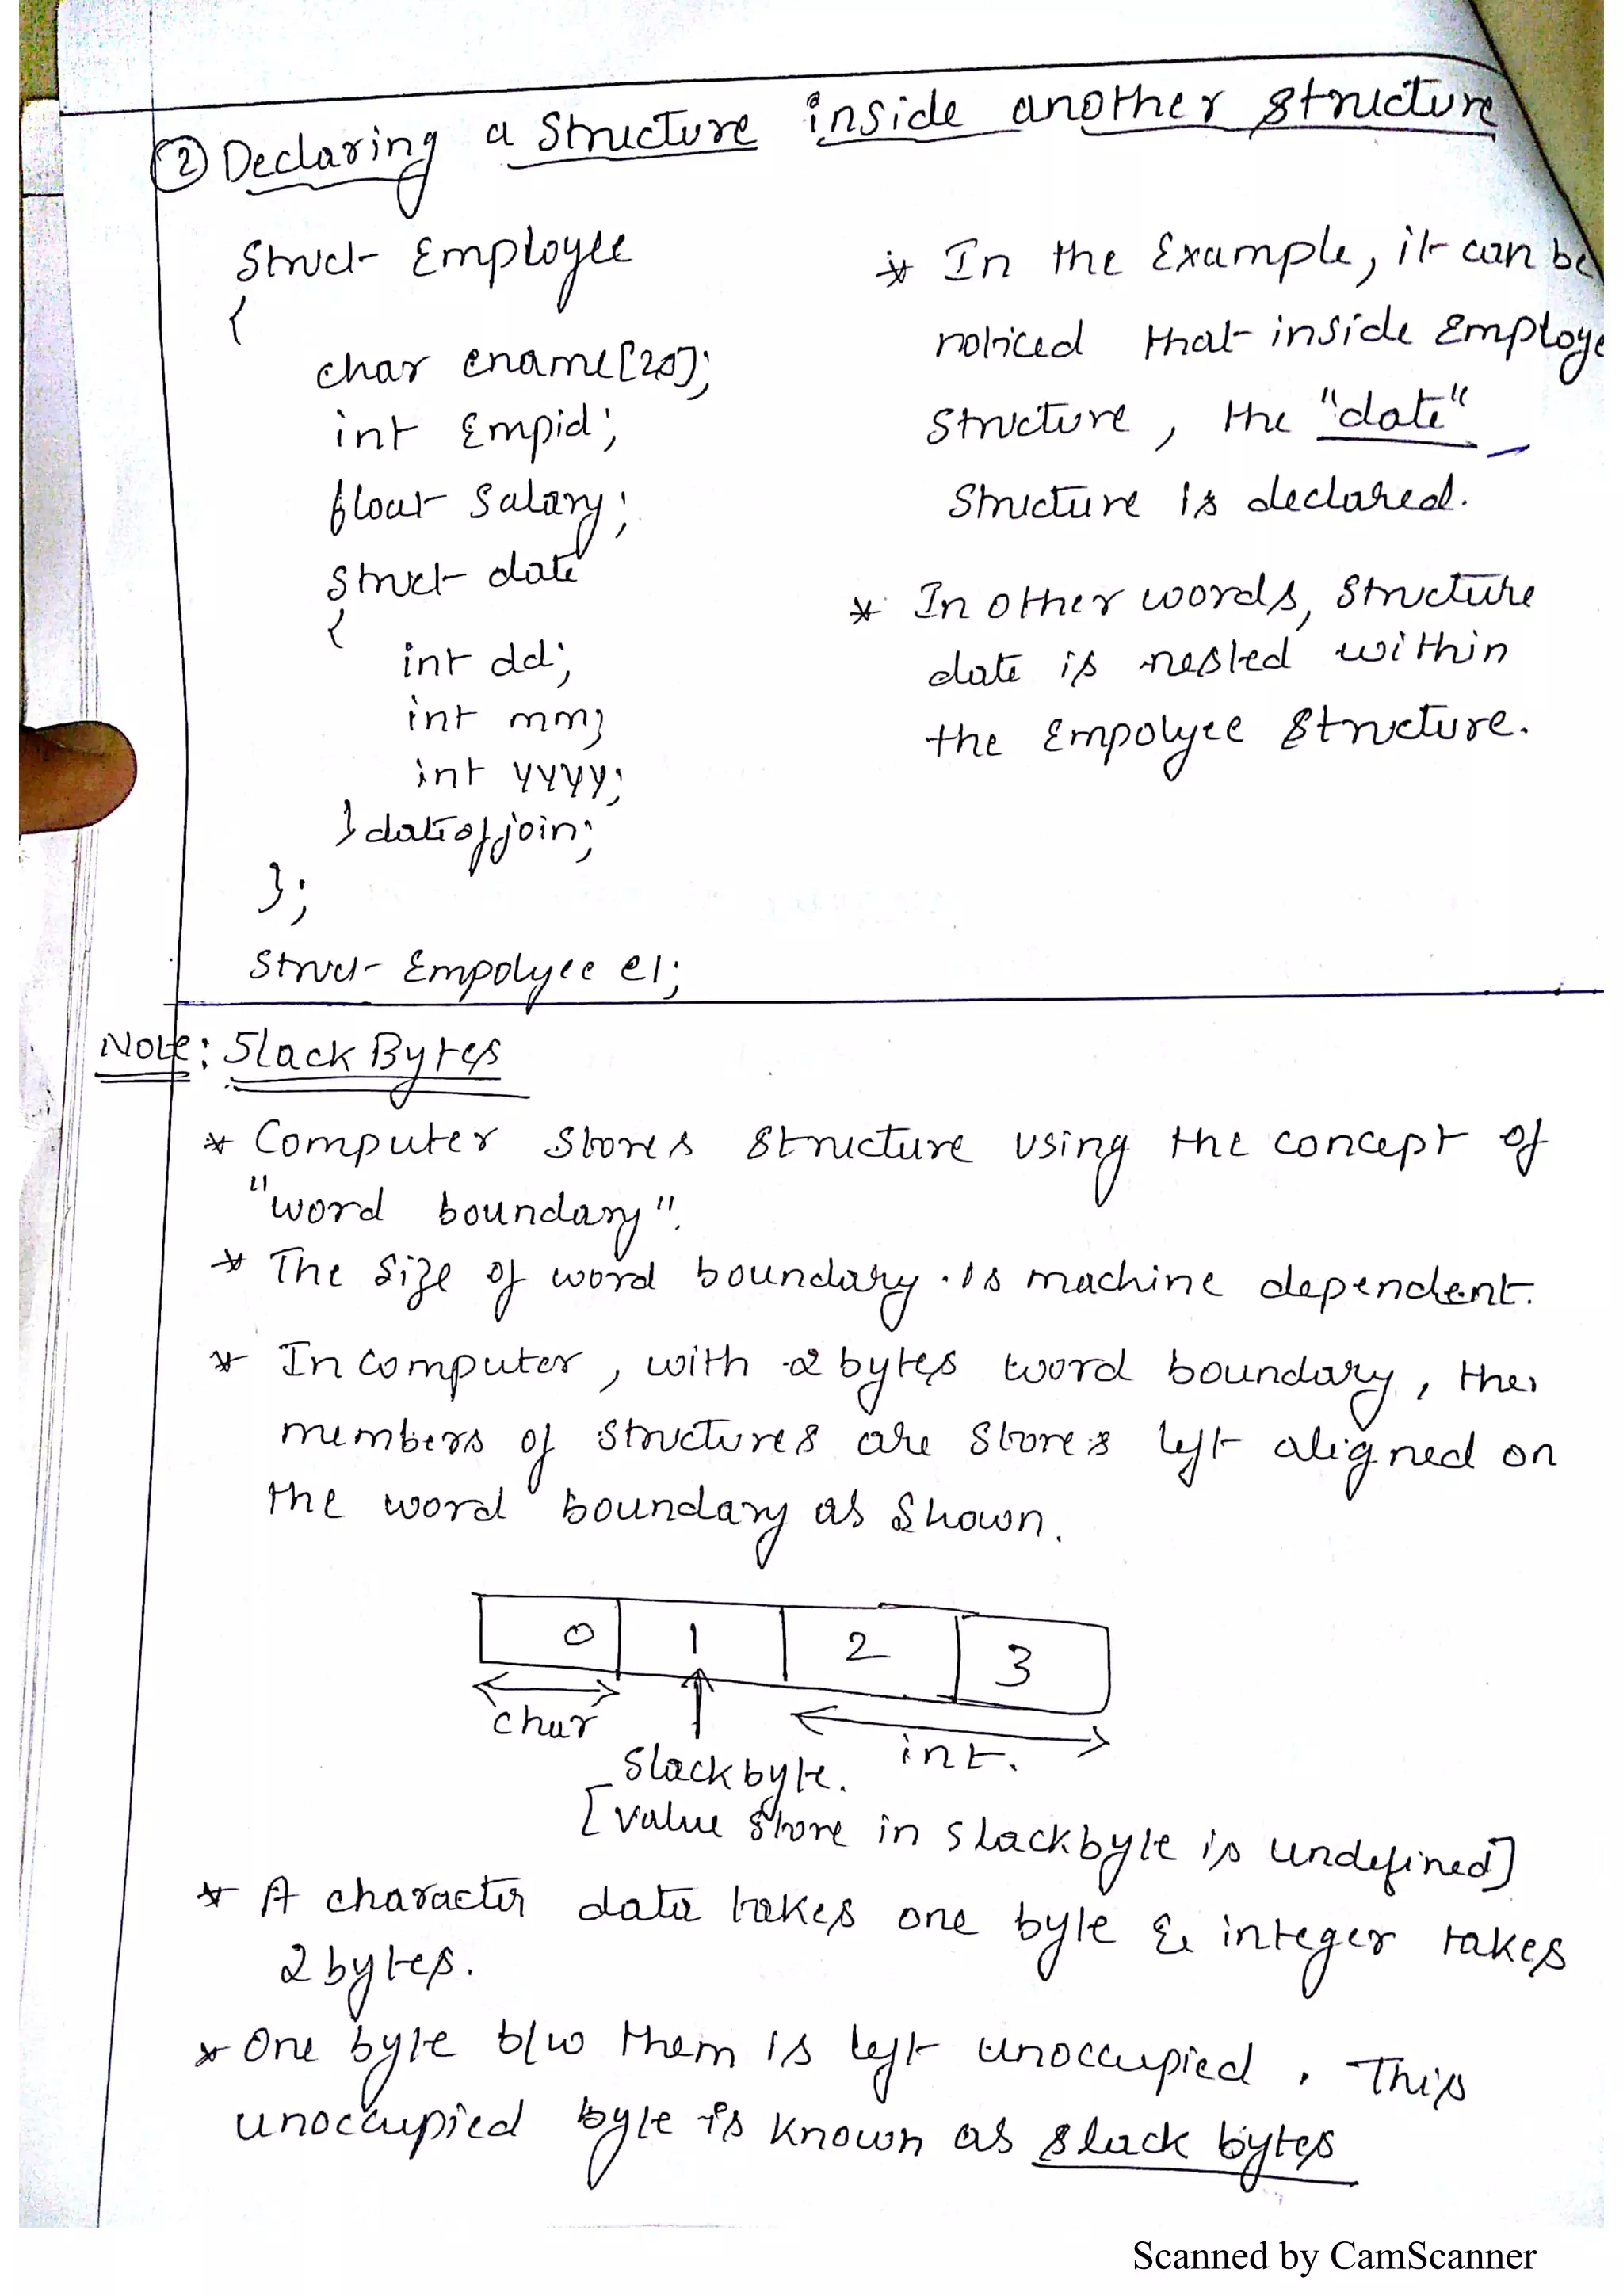 ② Declaring a Structure inside another structure
Struct Employee
{
char ename[20];
int Empid;
float Salary;
Struct date
{
int dd;
int mm;
int yyyy;
}dateofjoin;
};
Struct Empolyee e1;
* In the Example, it can be
noticed that inside Employe
Structure, the "date"
Structure is declared.
* In other words, Structure
date is nested within
the Empolyee Structure.
Note: Slack Bytes
* Computer Stores Structure using the concept of
"word boundary".
* The Size of word boundary is machine dependent.
* In computer, with 2 bytes word boundary, the
members of Structures are Stores left aligned on
the word boundary as Shown.
0 1 2 3
char
int.
Slack byte.
[value Store in slackbyte is undefined]
* A character data takes one byte & integer takes
2 bytes.
* One byte b/w them is left unoccupied. This
unoccupied byte is known as slack bytes
Scanned by CamScanner